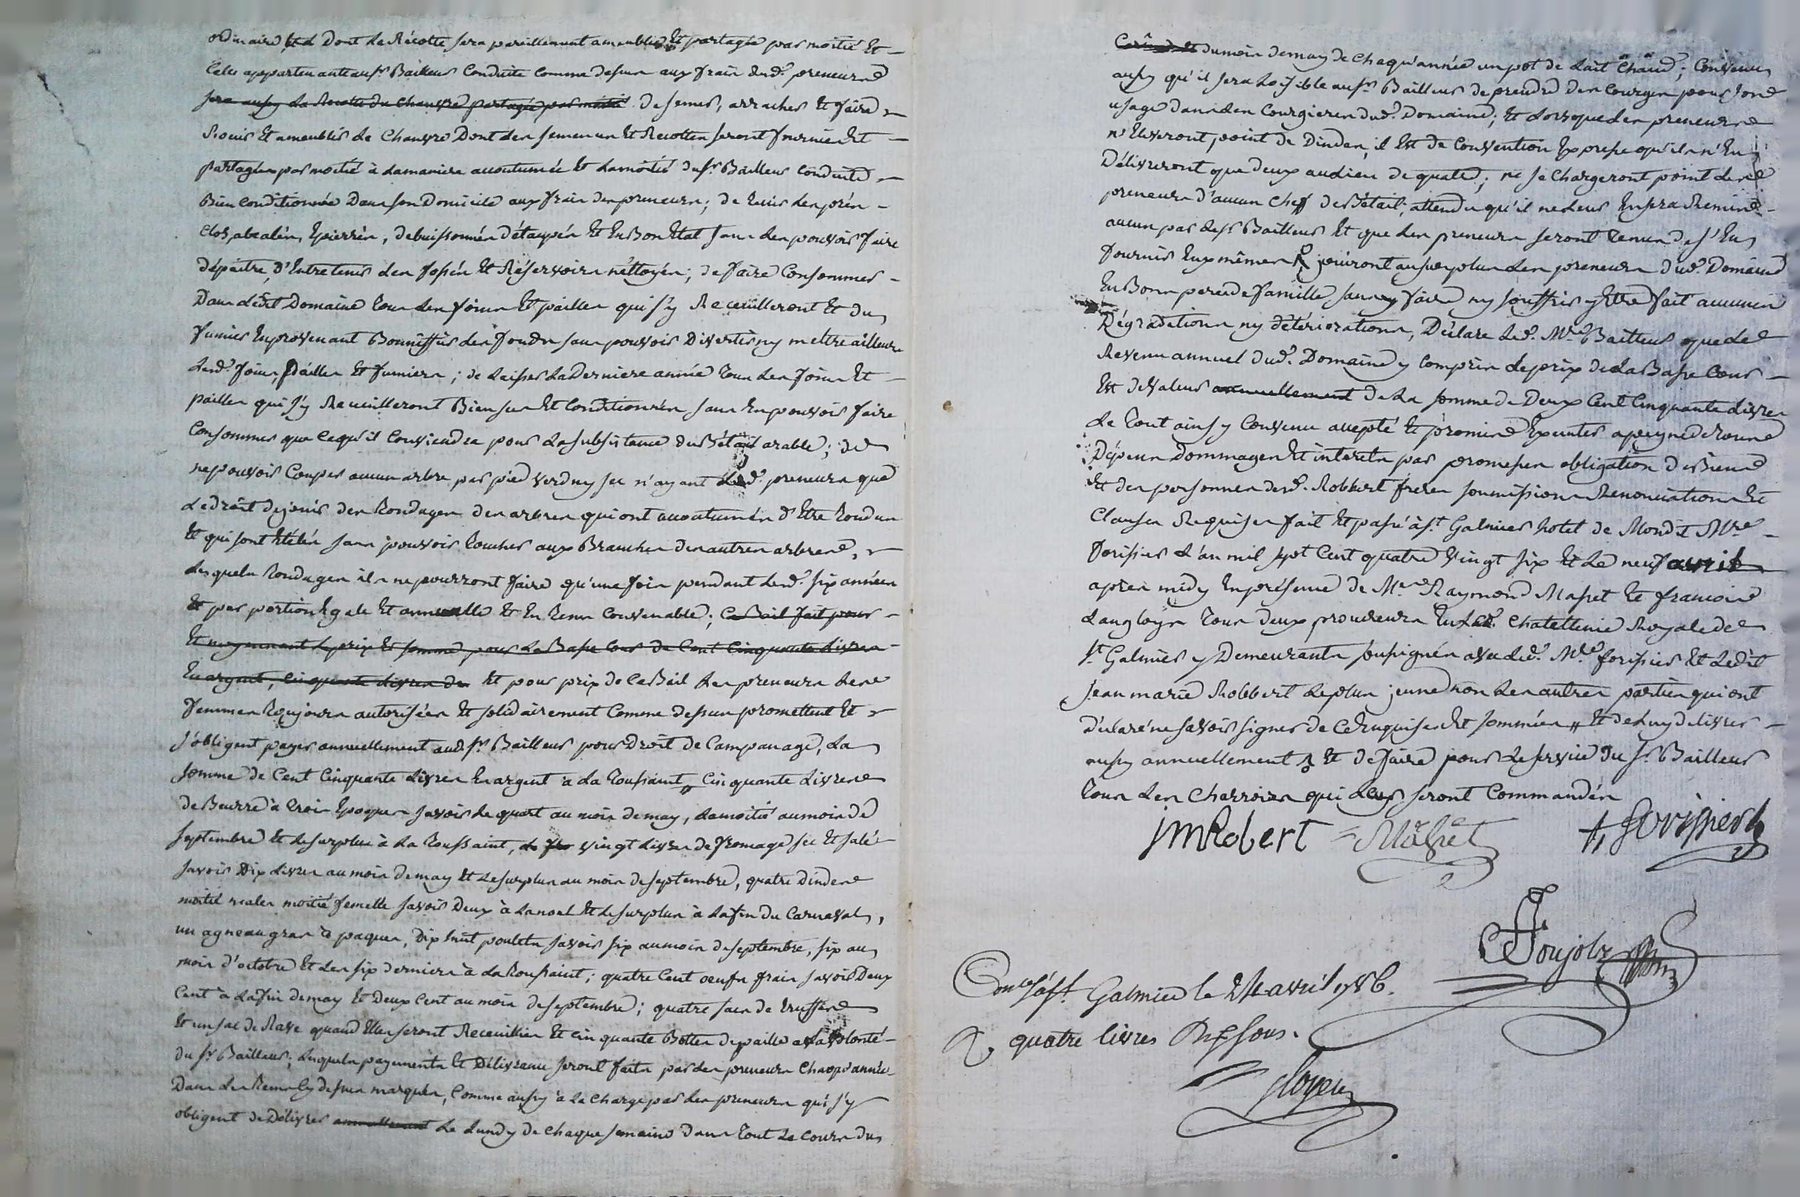 ordinaire et dont la Récolte sera pareillement ameublie et partagée par moitié et
celle appartenante aus.r Bailleur conduite comme dessus aux frais desd. preneurs
sera aussy la Recolte du chanvre partagée par moitié de semer, arracher et faire
Rouir et ameublir le chanvre dont les semences et Recoltes seront fournies et
partagées par moitié à la maniere accoutumée et la moitié du s.r Bailleur conduite
Bien conditionnée dans son domicile aux frais des preneurs; de tenir les prés
clos, abealés, Epierrés, debuissonnés détaupés et En Bon Etat sans les pouvoir faire
dépaitre, d'Entretenir les fossés et Réservoirs néttoyés; de faire Consommer
Dans ledit Domaine tous les foins et pailles qui s'y Receuilleront et du
fumier En provenant Bonniffier les fonds sans pouvoir divertir ny mettre ailleurs
lesd. foins, pailles et fumiers; de laisser la derniere année tous les foins et
pailles qui s'y Receuilleront Bien sec et Conditionnés sans En pouvoir faire
Consommer que ce qu'il Conviendra pour la subsistance du Bétail arable; de
ne pouvoir Couper aucun arbre par pied verd ny sec n'ayant lesd. preneurs que
le droit de jouir des tondages des arbres qui ont accoutumés d'Etre tondus
et qui sont Etétés sans pouvoir toucher aux Branches des autres arbres,
lesquels tondages ils ne pourront faire qu'une fois pendant lesd. six années
et par portion Egale et annuelle et En tems Convenable; ce Bail fait pour
Et moyennant le prix et somme pour la Basse Cour de Cent Cinquante livres
En argent, cinquante livres de Et pour prix de ce Bail les preneurs les
femmes toujours autorisées et solidairement comme dessus promettent et
s'obligent payer annuellement aud. s.r Bailleur pour droit de Campanage, la
somme de Cent Cinquante livres En argent à la toussaint, Cinquante livres
de Beurre à trois Epoques savoir le quart au mois de may, la moitié au mois de
septembre et le surplus à la toussaint, vingt livres de fromage sec et salé
savoir dix livres au mois de may et le surplus au mois de septembre, quatre dindes
moitié males moitié femelle savoir deux à la noel et le surplus à la fin du Carnaval,
un agneau gras à paques, dix huit poulets savoir six au mois de septembre, six au
mois d'octobre et les six derniers à la toussaint; quatre Cent oeufs frais savoir deux
Cent à la fin de may et deux Cent au mois de septembre; quatre sacs de truffes
et un sac de Rave quand Elles seront Receuillies et cinquante Bottes de paille a sa volonté
du s.r Bailleur; lesquels payements et Délivrances seront faits par les preneurs Chaqu'année
Dans les termes cy dessus marqués, Comme aussy à la Charge par les preneurs qui s'y
obligent de Délivrer annuellement le lundy de Chaque semaine dans tout le cours du
du mois de may de Chaqu'année un pot de lait Chaud; Convenu
aussy qu'il sera loisible aus.r Bailleur de prendre des Courges pour son
usage dans les Courgieres dud. Domaine; Et lorsque les preneurs
n'Eleveront point de Dindes, il Est de Convention Expresse qu'ils n'En
Délivreront que deux au lieu de quatre; ne se Chargeront point les
preneurs d'aucun Cheff de Bétail, attendu qu'il ne leur En sera Remis
aucun par led. s.r Bailleur et que les preneurs seront tenus de s'En
fournir Eux mêmes jouiront au surplus les preneurs dud. Domaine
En Bons peres de famille, sans y faire ny souffrir y Etre fait aucunes
Dégradations ny détériorations, Déclare led. M.re Bailleur que le
Revenu annuel dud. Domaine y Compris le prix de la Basse Cour
Est de valeur annuellement de la somme de Deux Cent Cinquante livres
Le tout ainsy Convenu accepté et promis Executer a peyne de tous
Dépens dommages Et interets par promesses obligation de Biens
Et des personnes desd. Robbert freres soumissions Renonciations Et
Clauses Requises fait Et passé à s.t Galmier hotel de Mondit M.re
forissier l'an mil sept Cent quatre vingt six et le neuf avril
apres midy En présence de M.re Raymond Masset Et francois
Langloys tous deux procureurs En la Chatellenie Royale de
s.t Galmier y Demeurants soussignés avec led. M.re forissier Et ledit
Jean marie Robbert le plus jeune non les autres parties qui ont
déclaré ne savoir signer de ce Enquises Et sommées # Et de luy delivrer
aussy annuellement Et de faire pour le service du s.r Bailleur
tous les Charrois qui leur seront Commandés
JMRobert Masset forissier
Poujolz
Con.lé à s.t Galmier le 24 avril 1786.
R quatre livres dix sous.